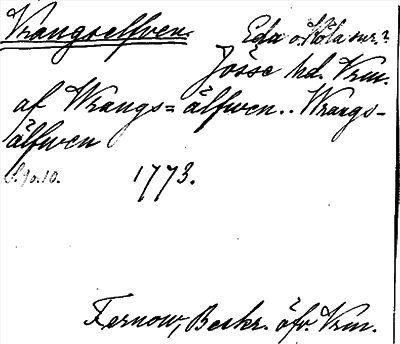 Vrangselfven. Eda o. Köla snr.?
Jösse hd. Vrm.
af Wrangs=älfwen.. Wrangs-
älfwen
S. 90. 10. 1773.
Fernow, Beskr. öfv. Vrm.